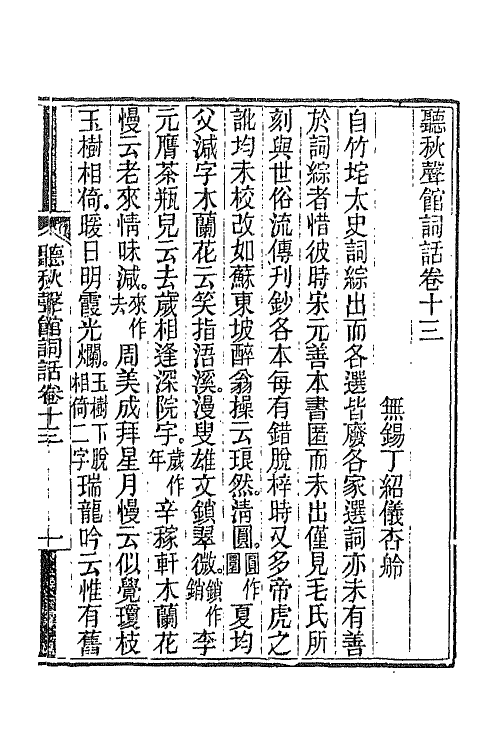 聽秋聲館詞話卷十三
無錫丁紹儀杏舲
自竹垞太史詞綜出而各選皆廢各家選詞亦未有善
於詞綜者惜彼時宋元善本書匿而未出僅見毛氏所
刻與世俗流傳刊鈔各本每有錯脫梓時又多帝虎之
訛均未校改如蘇東坡醉翁操云琅然淸圓。圓作圜夏均
父減字木蘭花云笑指浯溪。漫叟雄文鎖翠微。鎖作銷李
元膺茶瓶兒云去歲相逢深院宇。歲作年辛稼軒木蘭花
慢云老來情味減。來作去周美成拜星月慢云似覺瓊枝
玉樹相倚。暖日明霞光爛。玉樹下脫相倚二字瑞龍吟云惟有舊
聽秋聲館詞話卷十三 一